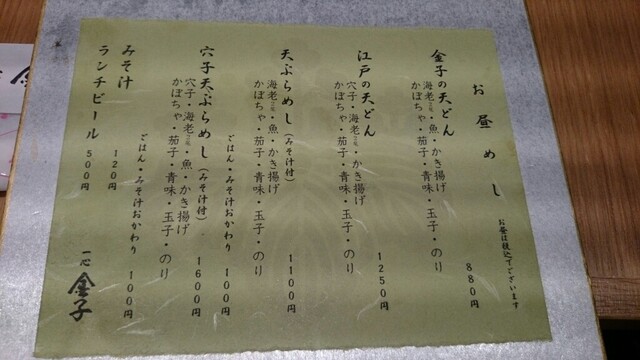 お昼めし
お昼は税込でございます
金子の天どん
海老二尾・魚・かき揚げ
かぼちゃ・茄子・青味・玉子・のり
880円
江戸の天どん
穴子・海老二尾・かき揚げ
かぼちゃ・茄子・青味・玉子・のり
1250円
天ぷらめし(みそ汁付)
海老二尾・魚・かき揚げ
かぼちゃ・茄子・青味・玉子・のり
1100円
ごはん・みそ汁おかわり 100円
穴子天ぷらめし(みそ汁付)
穴子・海老二尾・魚・かき揚げ
かぼちゃ・茄子・青味・玉子・のり
1600円
ごはん・みそ汁おかわり 100円
みそ汁 120円
ランチビール 500円
金子